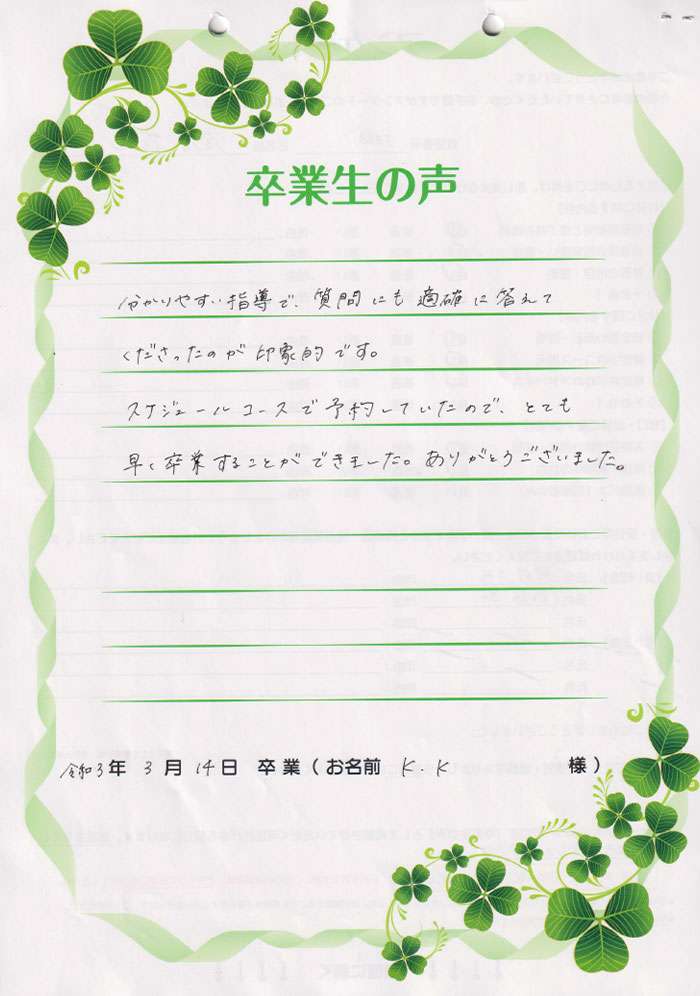 卒業生の声
分かりやすい指導で、質問にも適確に答えて
くださったのが印象的です。
スケジュールコースで予約していたので、とても
早く卒業することができました。ありがとうございました。
令和3年 3月 14日 卒業(お名前 K.K 様)